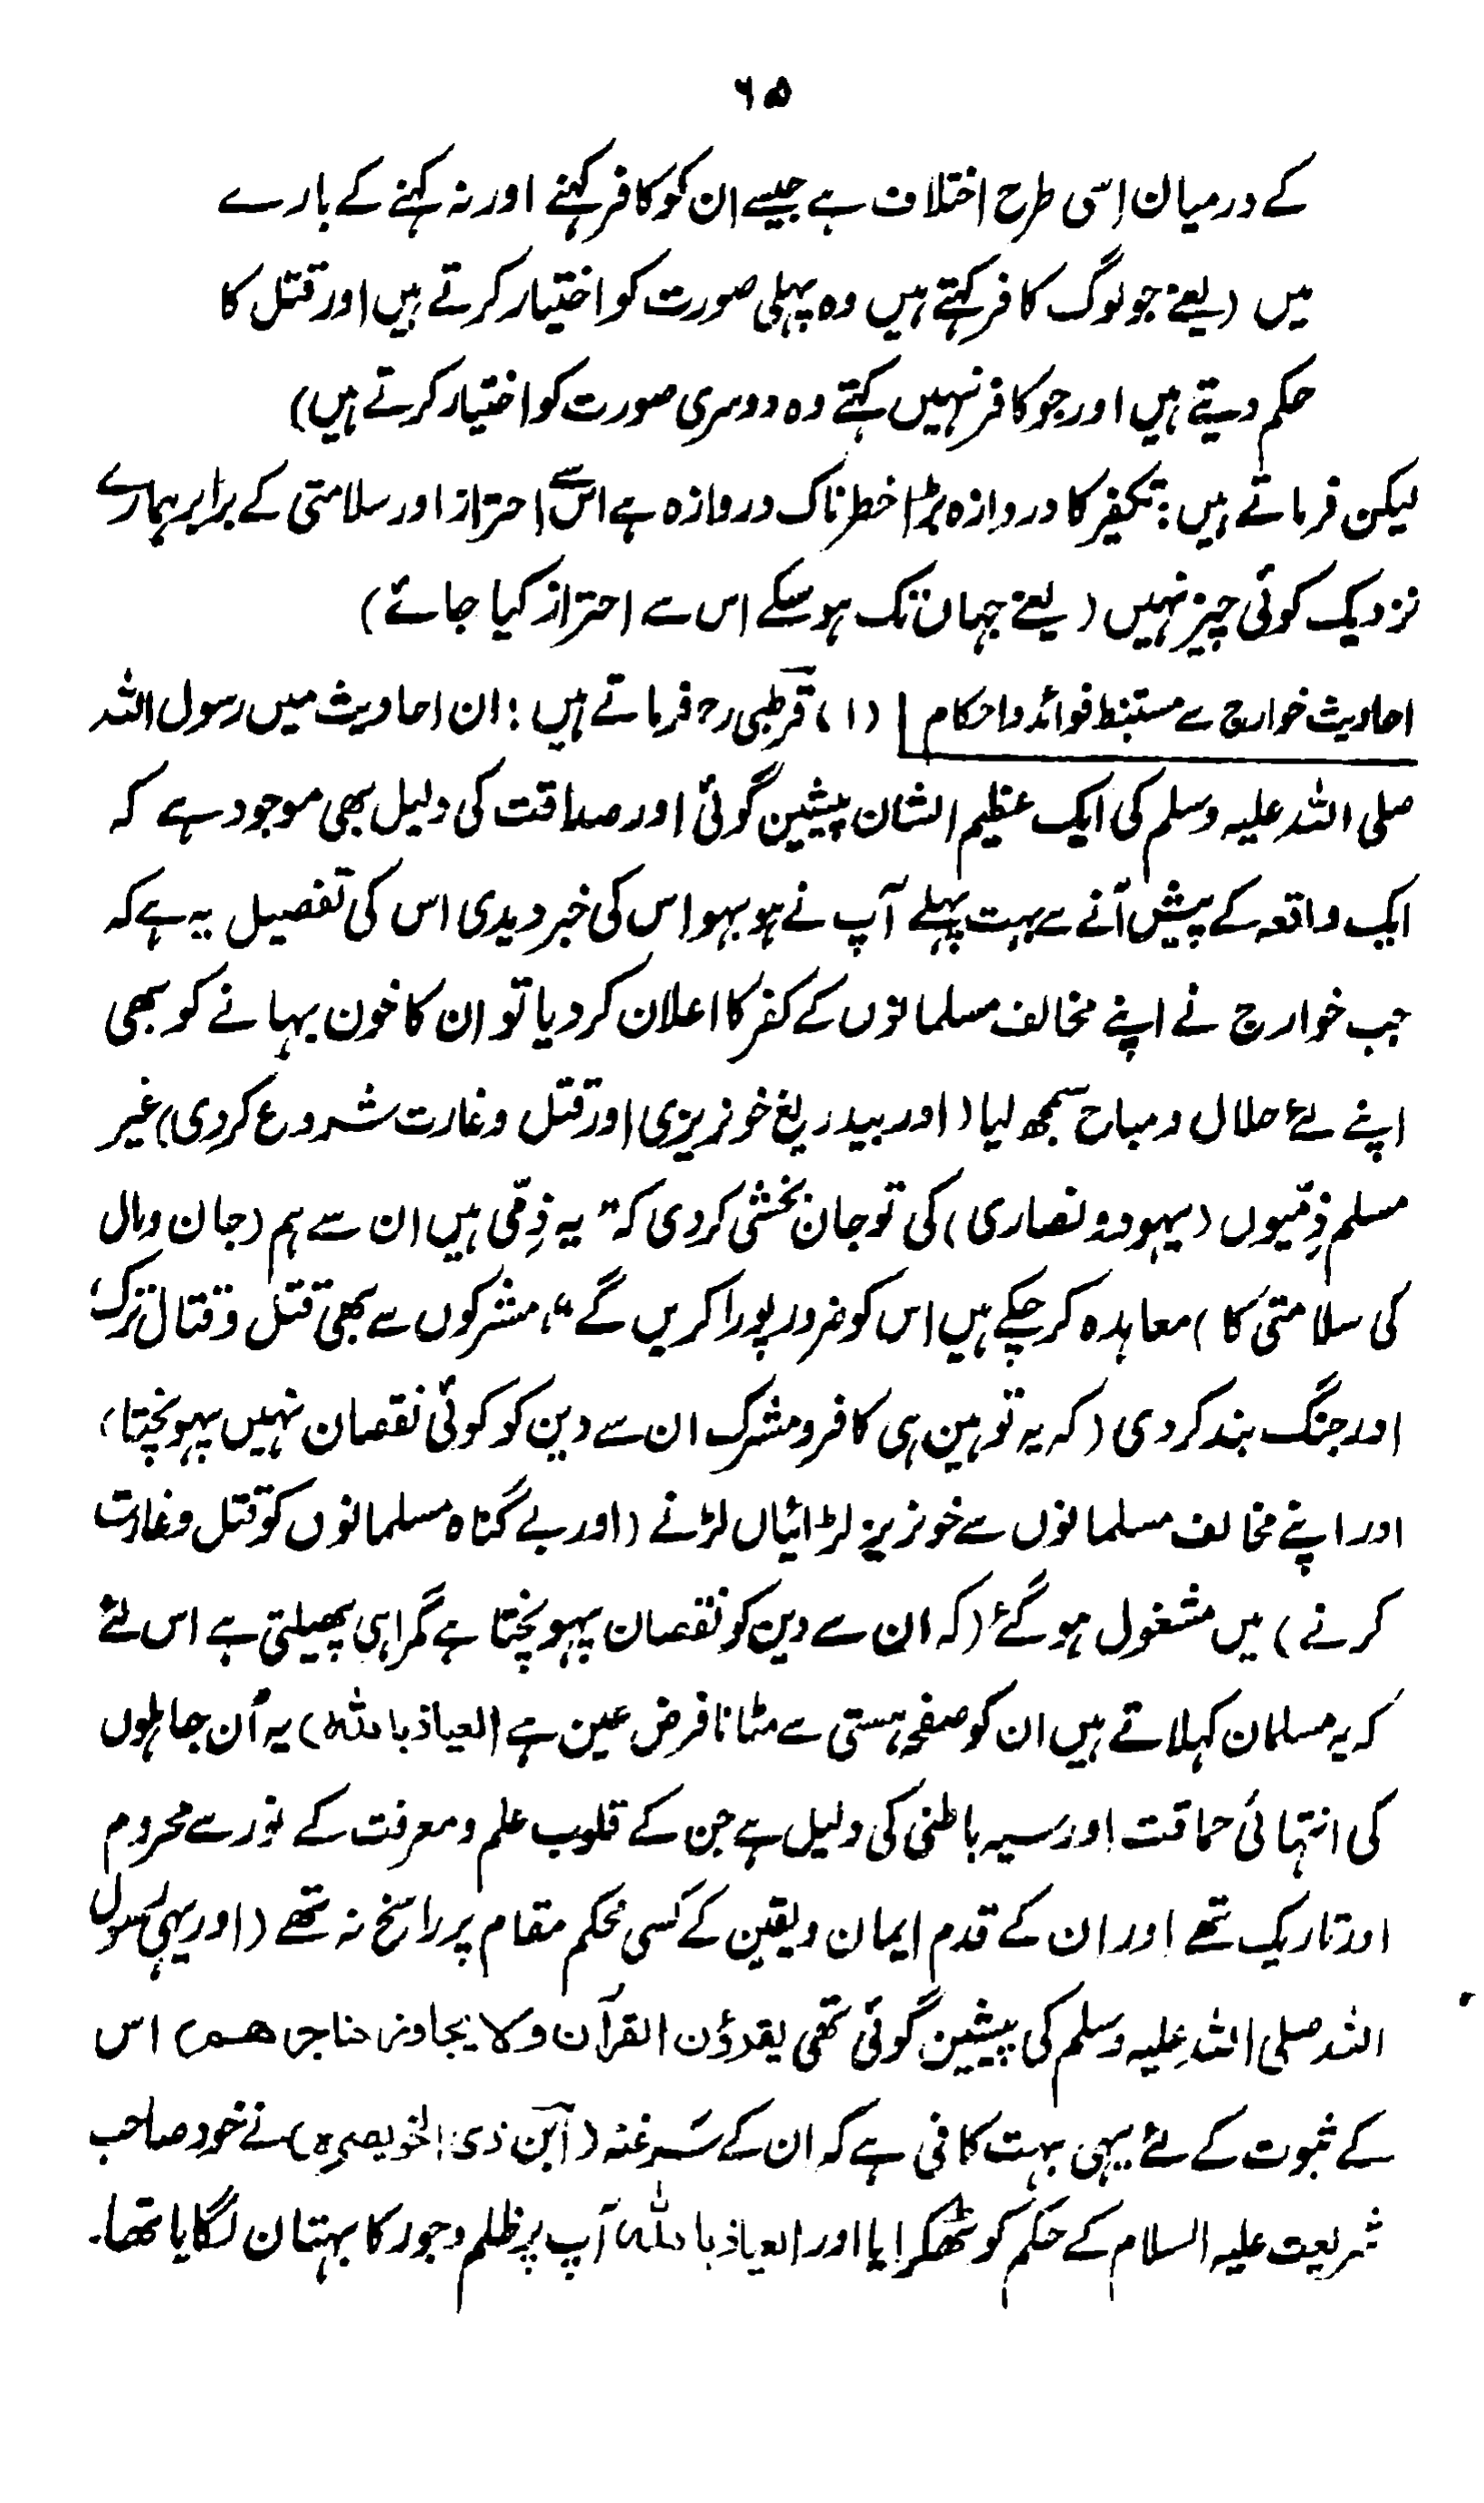 ۶۵
کے درمیان اِسی طرح اختلاف ہے جیسے ان کو کافر کہنے اور نہ کہنے کے بارے
میں (یعنے جو لوگ کافر کہتے ہیں وہ پہلی صورت کو اختیار کرتے ہیں اور قتل کا
حکم دیتے ہیں اور جو کافر نہیں کہتے وہ دوسری صورت کو اختیار کرتے ہیں)
لیکن فرماتے ہیں: تکفیر کا دروازہ بڑا خطرناک دروازہ ہے اس سے احتراز اور سلامتی کے برابر ہمارے
نزدیک کوئی چیز نہیں (یعنے جہان تک ہو سکے اس سے احتراز کیا جائے)
احادیث خوارج سے مستنبط فوائد و احکام (۱) قرطبی رح فرماتے ہیں: ان احادیث میں رسول اللہ
صلی اللہ علیہ وسلم کی ایک عظیم الشان پیشین گوئی اور صداقت کی دلیل بھی موجود ہے کہ
ایک واقعہ کے پیش آنے سے بہت پہلے آپ نے ہو بہو اس کی خبر دیدی اس کی تفصیل یہ ہے کہ
جب خوارج نے اپنے مخالف مسلمانوں کے کفر کا اعلان کر دیا تو ان کا خون بہانے کو بھی
اپنے لئے حلال و مباح سمجھ لیا (اور بیدریغ خونریزی اور قتل و غارت شروع کردی) غیر
مسلم ذِمّیوں (یہود و نصاری) کی تو جان بخشی کر دی کہ "یہ ذِمّی ہیں ان سے ہم (جان و مال
کی سلامتی کا) معاہدہ کر چکے ہیں اس کو ضرور پورا کریں گے"، مشرکوں سے بھی قتل و قتال ترک
اور جنگ بند کر دی (کہ یہ تو ہین ہی کافر و مشرک ان سے دین کو کوئی نقصان نہیں پہونچتا)
اور اپنے مخالف مسلمانوں سے خونریز لڑائیاں لڑنے (اور بے گناہ مسلمانوں کو قتل و غارت
کرنے) میں مشغول ہو گئے (کہ ان سے دین کو نقصان پہونچتا ہے گمراہی پھیلتی ہے اس لئے
کہ یہ مسلمان کہلاتے ہیں ان کو صفحہ ہستی سے مٹانا فرض عین ہے (العیاذ باللہ) یہ اُن جاہلوں
کی انتہائی حماقت اور سیہ باطنی کی دلیل ہے جن کے قلوب علم و معرفت کے نور سے محروم
اور تاریک تھے اور ان کے قدم ایمان و یقین کے کسی محکم مقام پر راسخ نہ تھے (اور یہی رسول
اللہ صلی اللہ علیہ وسلم کی پیشین گوئی تھی یقرؤن القرآن ولا یجاوز حناجرھم) اس
کے ثبوت کے لئے یہی بہت کافی ہے کہ ان کے سرغنہ (ابن ذی الخویصرہ) نے خود صاحب
شریعت علیہ السلام کے حکم کو ٹھکرایا اور العیاذ باللہ آپ پر ظلم و جور کا بہتان لگایا تھا۔